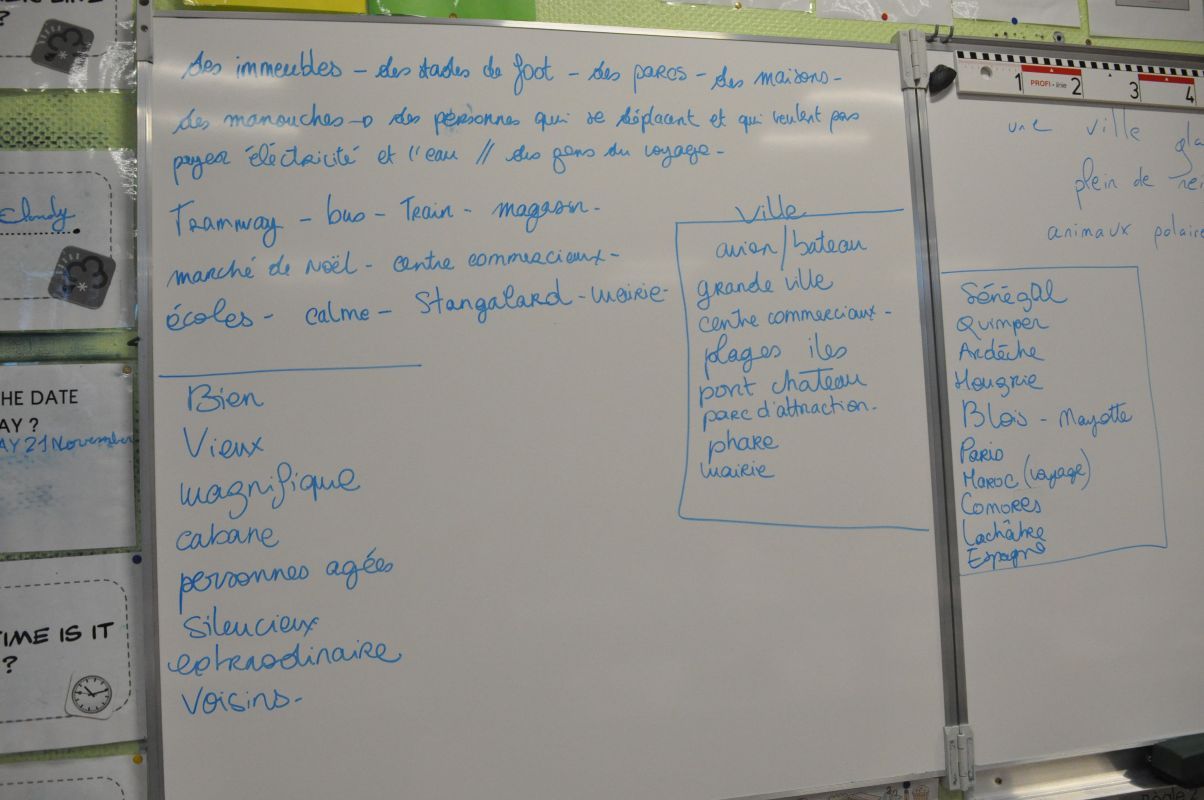 des immeubles - des stades de foot - des parcs - des maisons -
des manouches → des personnes qui se déplacent et qui veulent pas
payer électricité et l'eau // des gens du voyage -
Tramway - bus - Train - magasin -
marché de Noël - centre commerciaux -
écoles - calme - Stangalard - mairie -
Bien
Vieux
magnifique
cabane
personnes agées
silencieux
extraodinaire
Voisins -
Ville
avion / bateau
grande ville
centre commerciaux -
plages iles
pont chateau
parc d'attraction -
phare
mairie
1 PROFI-linie 2 3 4
une ville
plein de
animaux polaire
Sénégal
Quimper
Ardèche
Hongrie
Blois - Mayotte
Paris
Maroc (voyage)
Comores
Lachâtre
Espagne
Cloudy
HE DATE
AY ?
AY 21 November
TIME IS IT
?